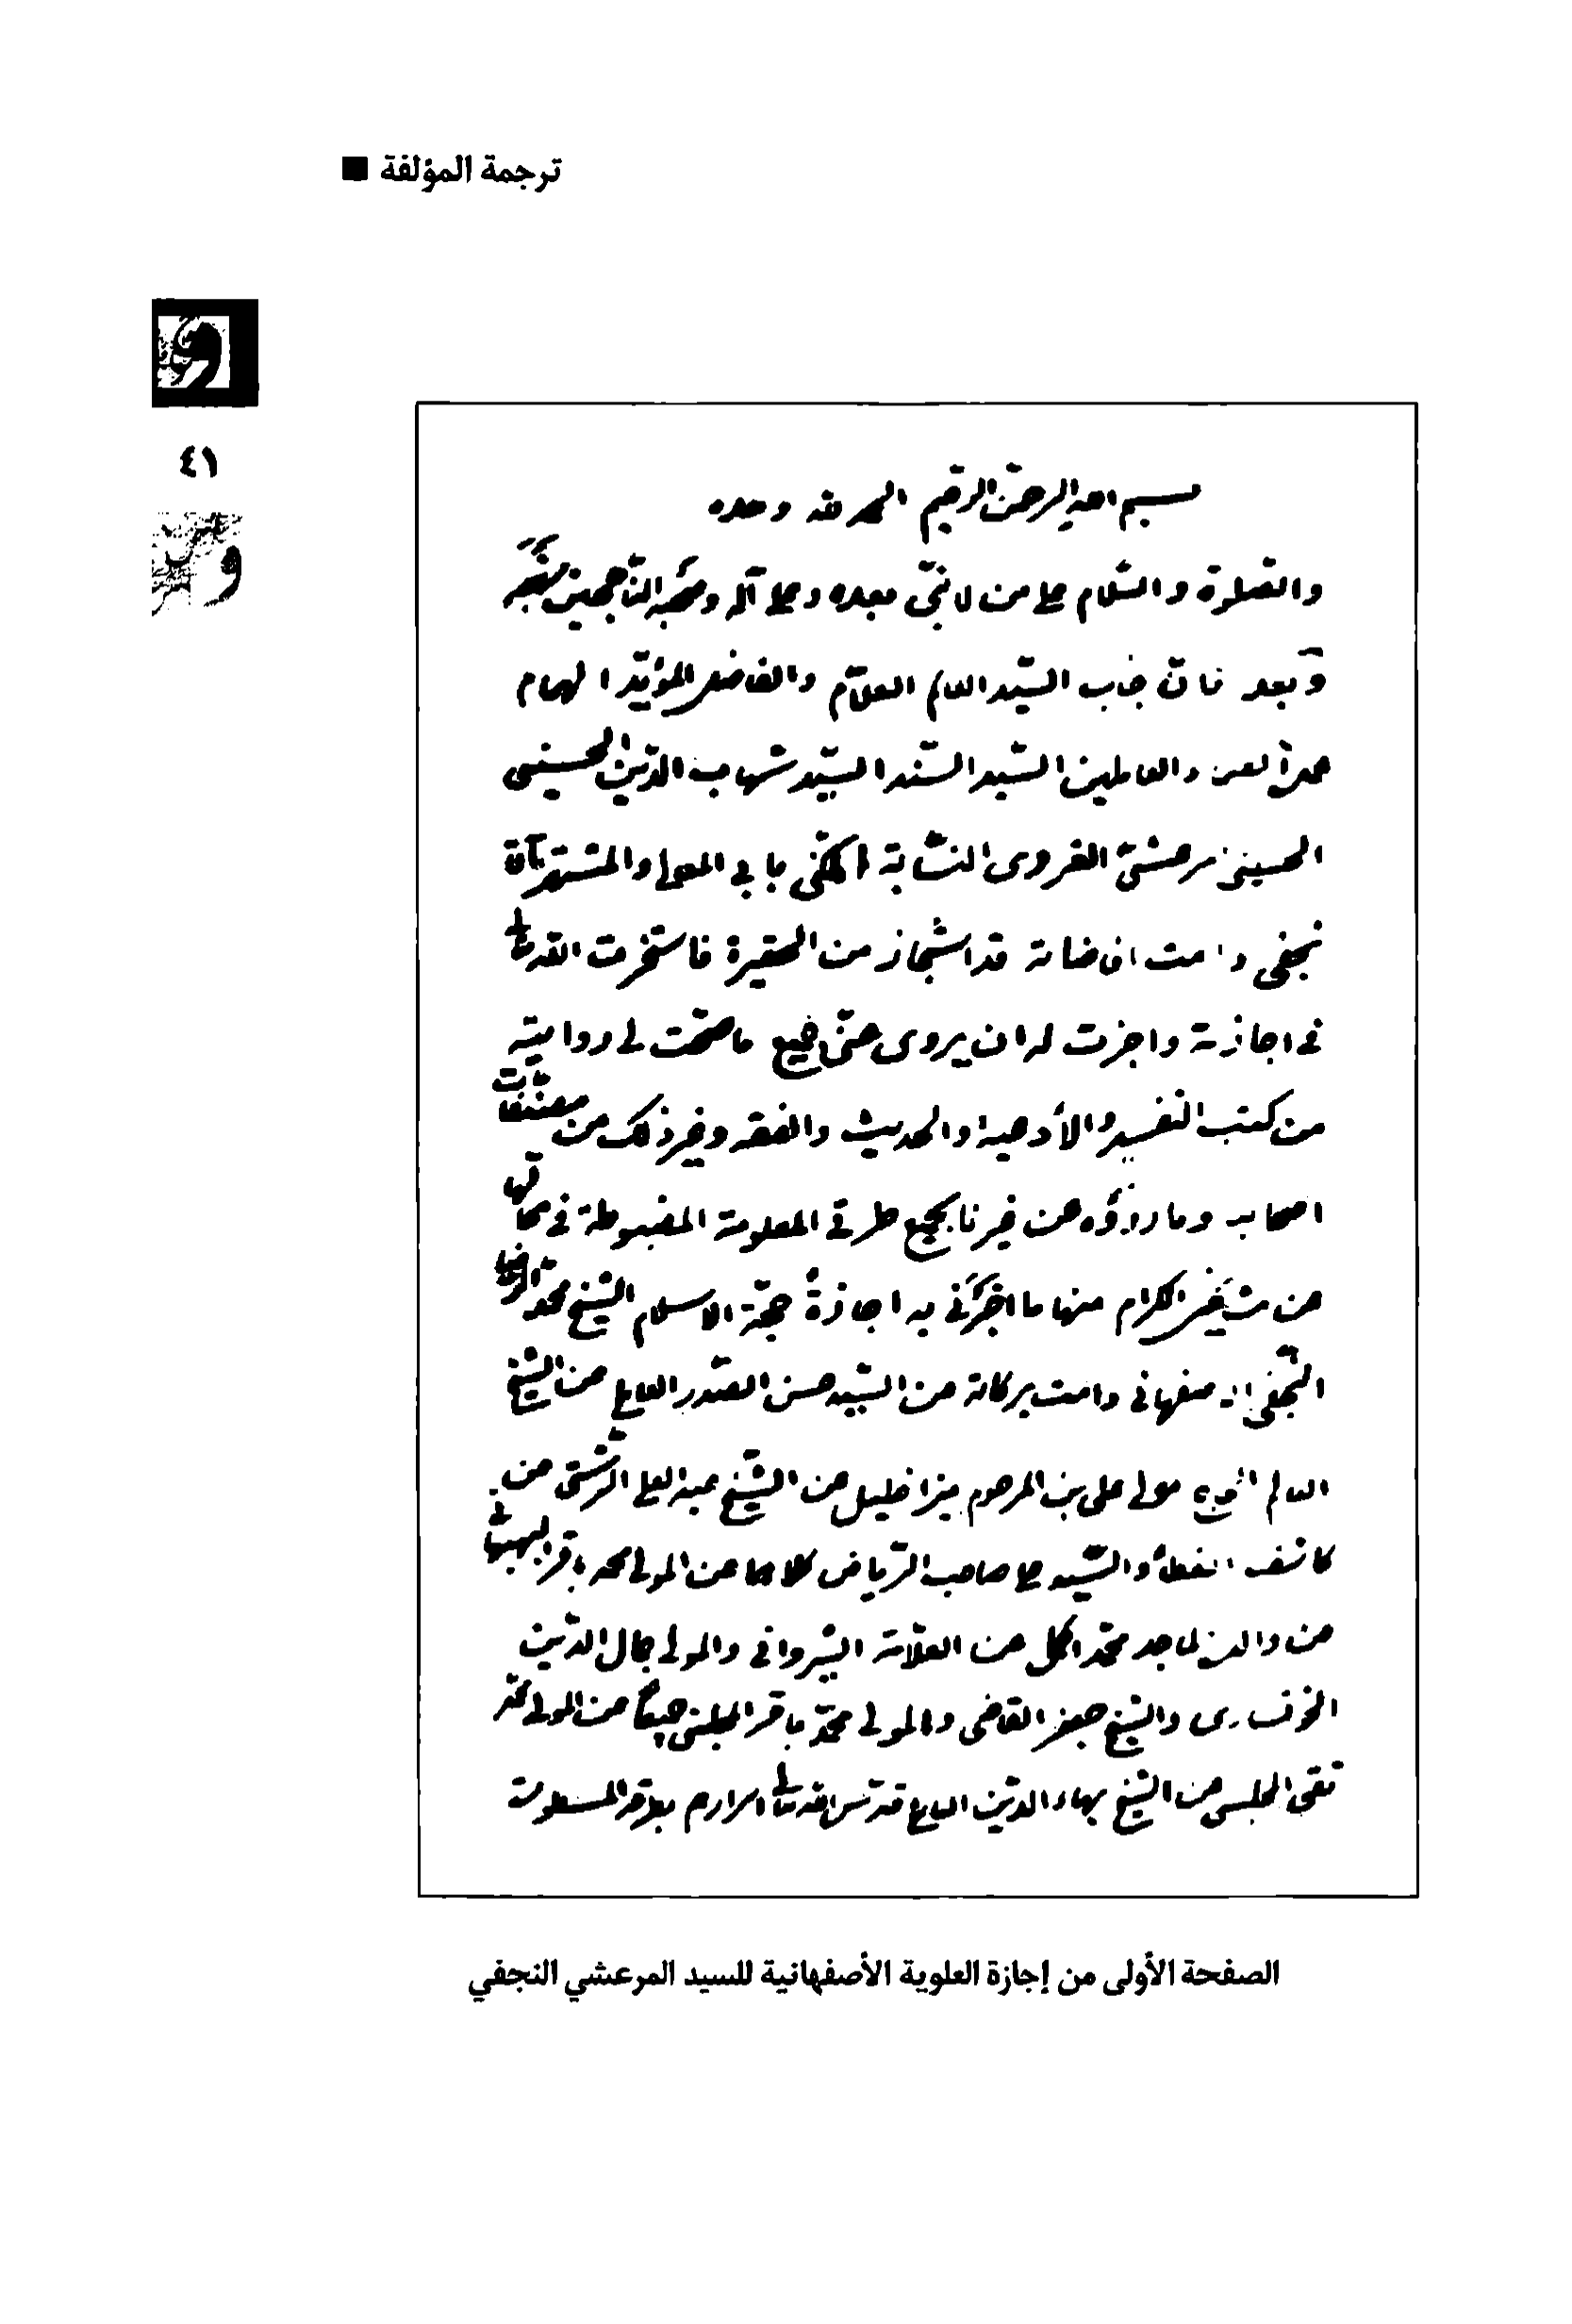 ترجمة المؤلفة ■
٤١
بسم الله الرحمن الرحيم الحمد لله وحده
والصلوة والسّلام على من لا نبيّ بعده وعلى آله وصحبه
وبعد فانّ جناب السيّد العالم العلّام والفاضل المؤيّد الهمام
والعاملين السيّد السّند السيّد شهاب الدّين الحسيني
الحسيني مرعشيّ الغروى النسّابة المكنّى بابي المعالي والمشتهر بآقا
نجفي دامت افاضاته قد استجاز من الحقيرة فاستخرت الله تعالى
في اجازته واجزت له ان يروى عنّى جميع ما صحّت لي روايته
من كتب التفسير والأدعية والحديث والفقه وغير ذلك من مصنفات
اصحابنا وما رووه عن غيرنا بجميع طرقي المعلومة المضبوطة في محالّها
عن مشايخى الكرام منها ما اخبرنى به اجازةً حجّة الاسلام الشيخ محمد الرضا
النّجفى الاصفهاني دامت بركاته عن السيّد حسن الصّدر العاملي عن الشيخ
العالم مولى على بن المرحوم ميرزا خليل عن الشّيخ عبد العلي الرّشتى عن
كاشف الغطاء والسّيد على صاحب الرّياض كلاهما عن المولى محمد باقر البهبهاني
عن والده الماجد محمّد اكمل عن العلّامة الشيرواني والمولى جمال الدّين
الخونسارى والشيخ جعفر القاضي والمولى محمّد باقر المجلسى جميعًا عن المولى محمّد
تقى المجلسي عن الشيخ بهاء الدّين العاملي قدّس الله تعالى اسرارهم بطرقه المسطورة
الصفحة الأولى من إجازة العلوية الأصفهانية للسيد المرعشي النجفي